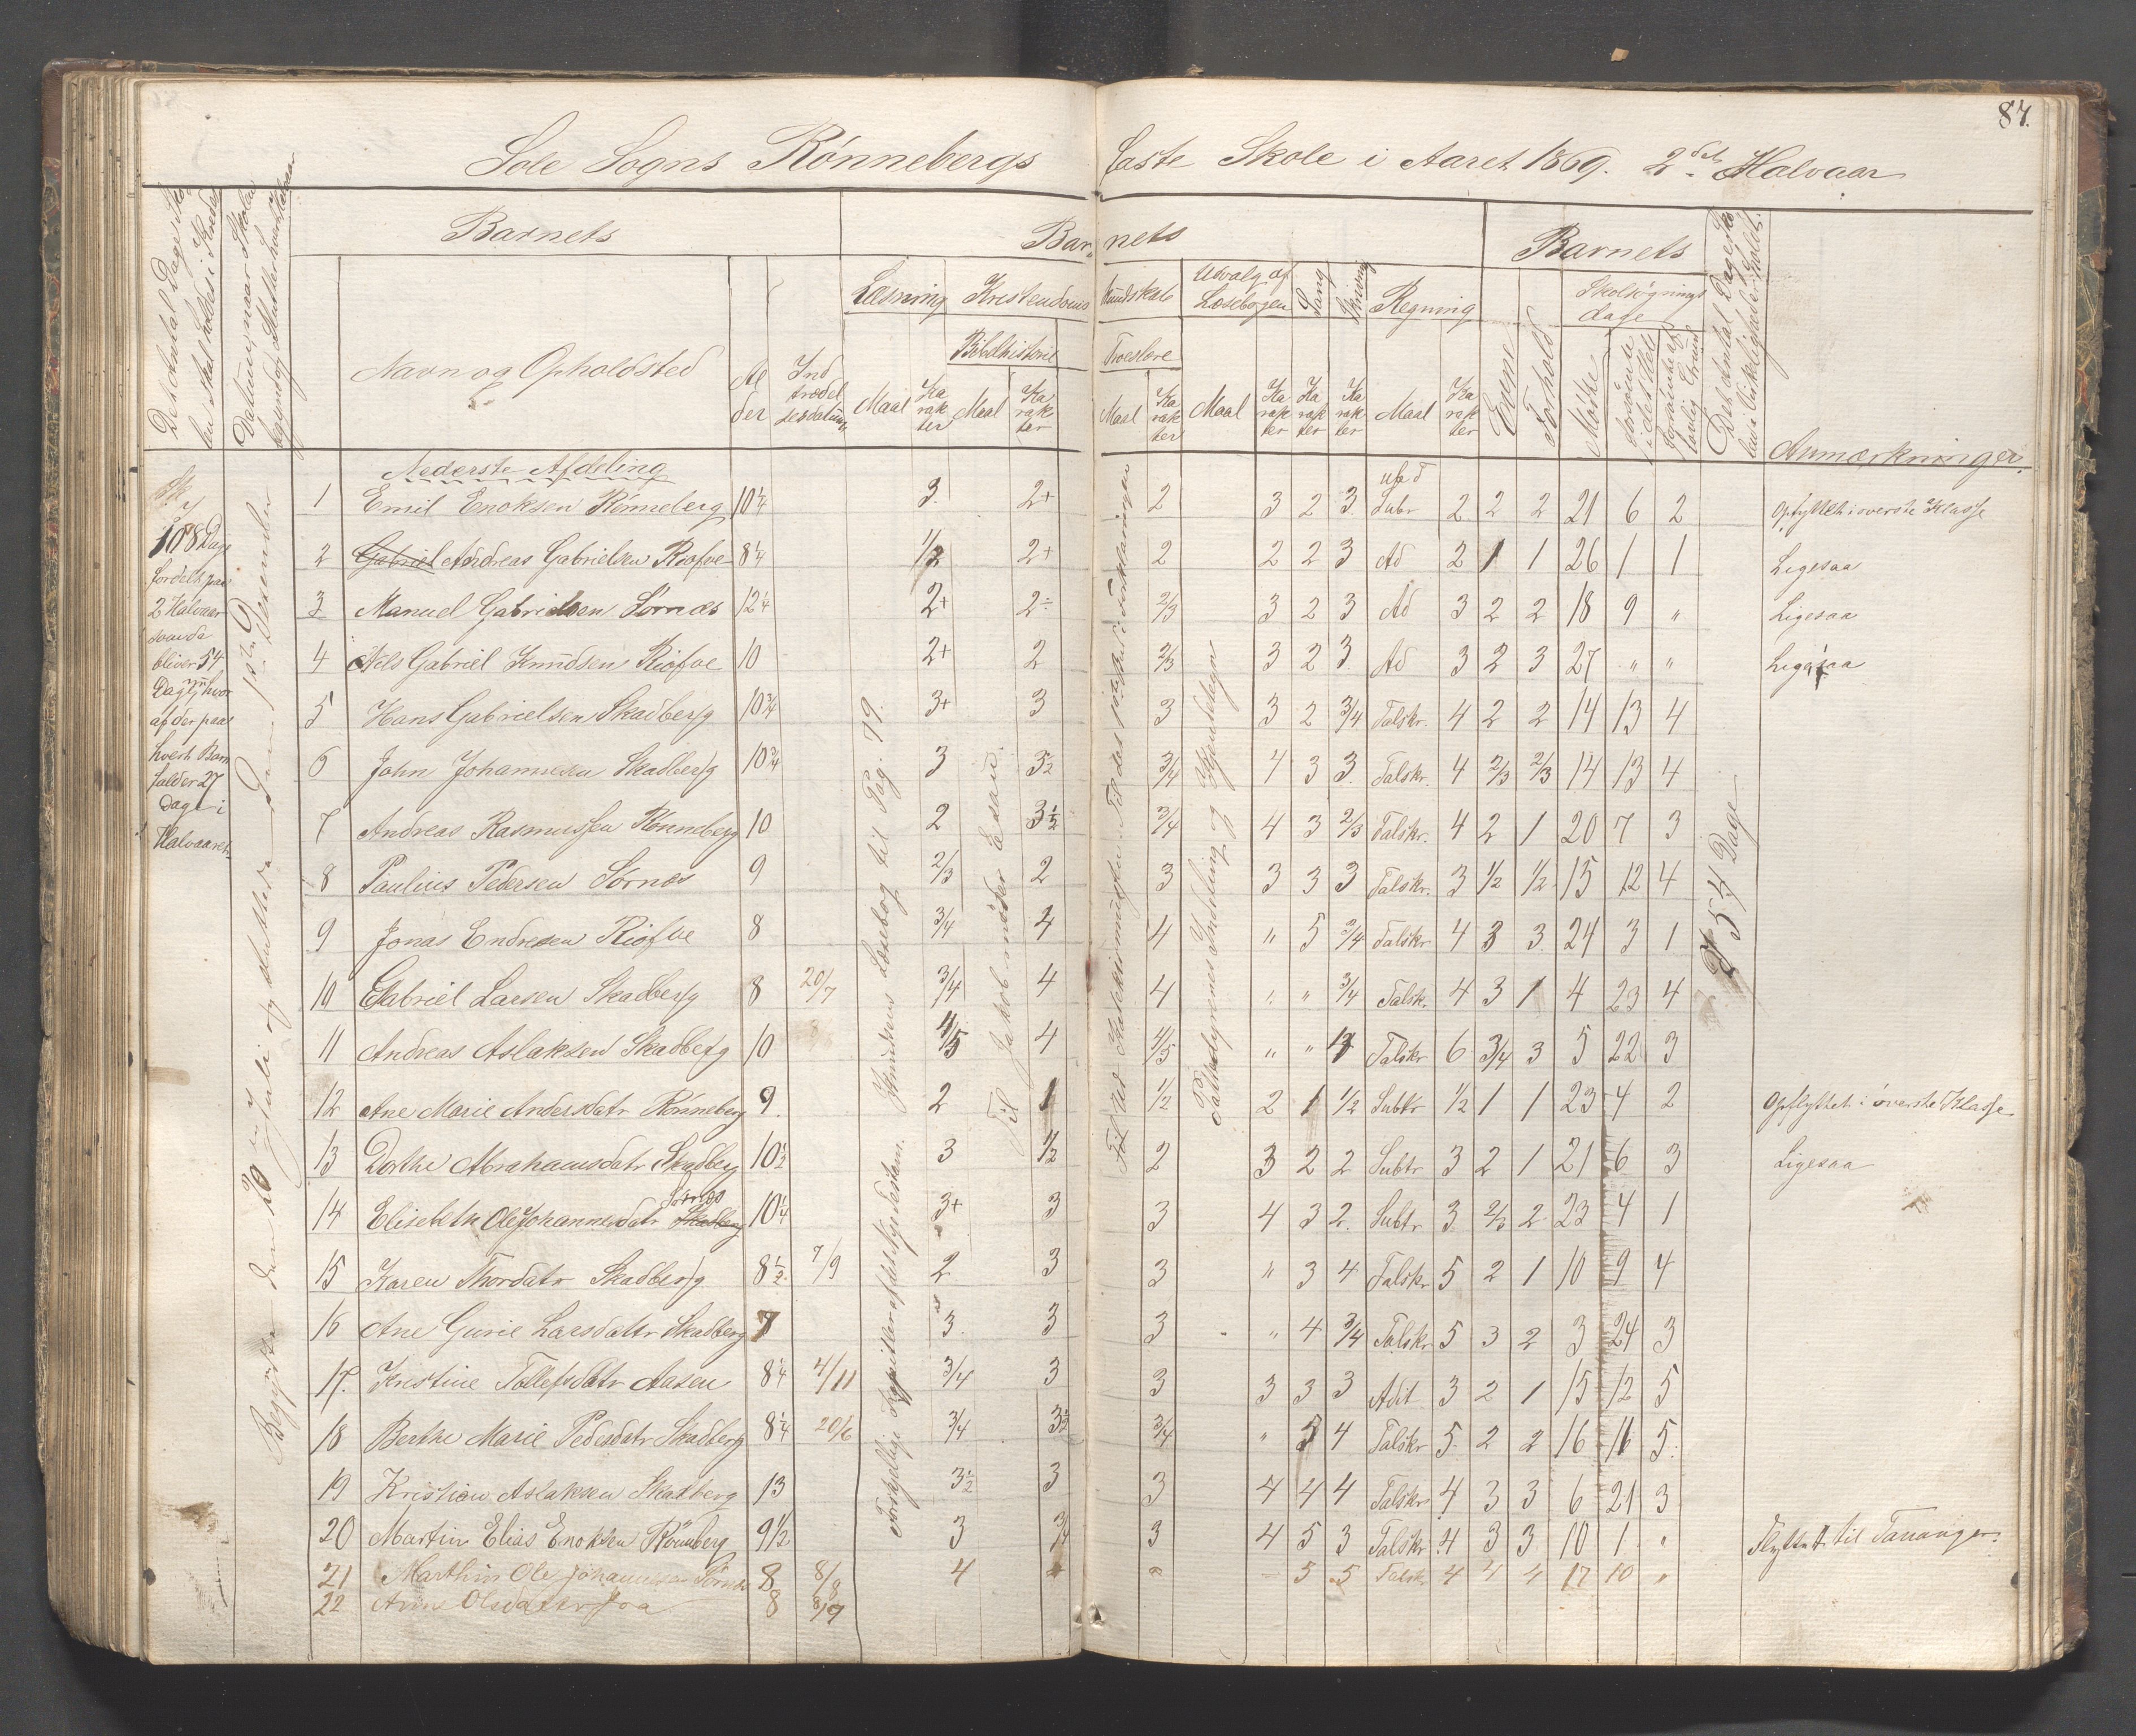 87.
Sole Sogns Rønnebergs faste Skole i Aaret 1869. 2det Halvaar
Det Antal Dage Skolen skal holdes i Kredsen
Datum, naar Skolen begyndte og sluttede hvert Halvaar
Barnets
Barnets
Barnets
Navn og Opholdsted
Alder
Indtrædelsesdatum
Læsning
Kristendomskundskab
Udvalg af Læsebogen
Sang
Skrivning
Regning
Evne
Forhold
Skolesøgningsdage
Bibelhistorie
Troeslære
Maal Karakter Maal Karakter Maal Karakter Maal Karakter Karakter Karakter Maal Karakter
Mødte
forsømte i det Hele
forsømte af lovlig Grund
Det Antal Dage Skolen i Virkeligheden er holdt.
Anmærkninger.
108 Dage
fordelt paa
2 Halvaar
som da
bliver 54
Dage, hvor
af der paa
hvert Barn
falder 27
Dage i
Halvaaret.
Begyndte den 20de Juli og sluttede den
Forskjellige Kapitler af det Nye Testam.
Knudsens Læsebog til Pag. 79.
Til Jakob møder Esau.
Pattedyrenes Inddeling og Kjendetegn
54 Dage
Nederste Afdeling
1 Emil Enoksen Rønneberg 10 1/4 3. 2+ 2 3 2 3. Subr 2 2 2 21 6 2 Opflyttet i øverste Klasse
2 Gabriel Andreas Gabrielsen Risfoe 8 1/4 1/2 2+ 2 2 2 3 Ad 2 1 1 26 1 1 Ligesaa
3 Manuel Gabrielsen Sørnæs 12 1/4 2+ 2÷ 2/3 3 2 3 Ad 3 2 2 18 9 " Ligesaa
4 Nels Gabriel Knudsen Risfoe 10 2+ 2 2/3 3 2 3. Ad 3 2 3 27 " " Ligesaa
5 Hans Gabrielsen Skadberg 10 3/4 3+ 3 3 3 2 3/4 Talskr. 4 2 2 14 13 4
6 John Johannesen Skadberg 10 3/4 3 3 1/2 3/4 4 3 3. Talskr. 4 2/3 2/3 14 13 4
7 Andreas Rasmussen Rønneberg 10 2 3 1/2 3/4 4 3 2/3 Talskr. 4 2 1 20 7 3
8 Paulius Pedersen Sørnæs 9 2/3 2 3 3 3 3 Talskr. 3 1/2 1/2 15 12 4
9 Jonas Endresen Risfoe 8 3/4 4 4 " 5 3/4 Talskr 4 3 3. 24 3 1
10 Gabriel Larsen Skadberg 8 20/7 3/4 4 4 " " 3/4 Talsk. 4 3 1 4 23 4
11 Andreas Aslaksen Skadberg 10 4/5 4 4/5 " " 4 Talskr 6 3/4 3 5 22 3
12 Ane Marie Andersdatr Rønneberg 9. 2 1 1/2 2 1 1/2 Subtr 1/2 1 1 23 4 2 Opflyttet i øverste Klasse
13 Dorthe Abrahamsdatr Skadberg 10 1/2 3 1/2 2 3 2 2 Subtr 3 2 1 21 6 3 Ligesaa
14 Elisebeth Ole Johannesdatr Skadberg Sørnæs 10 1/4 3+ 3 3 4 3 2. Subtr 3 2/3 2 23 4 1
15 Karen Thordatr Skadberg 8 1/2 7/9 2 3 3 " 3 4 Talskr 5 2 1 10 9 4
16 Ane Gurie Larsdattr Skadberg 7 3. 3 3 " 4 3/4 Talskr 5 3 2 3 24 3
17. Kristine Tollefsdatr Aasen 8 1/4 4/11 3/4 3 3 3 3 3 Adit 3 2 1 15 12 5
18 Berthe Marie Pedersdatr Skadberg 8 1/4 20/6 3/4 3 1/2 3/4 " 5 4 Talskr 5. 2 2 16 11 5.
19 Kristian Aslaksen Skadberg 13 3 1/2 3 3 4 4 4 Talskr 4 3 3 6 21 3
20 Martin Elias Enoksen Rönneberg 9 1/2 3 3/4 3 4 5 3 Talskr 4 3 3 10 1 " Flyttet til Tananger.
21 Marthin Ole Johannesen Sørnæs 8 8/8 4 5 5 Talsk 4 4 4 17 10 "
22 Ane Olsdatter Joa 8 8/9